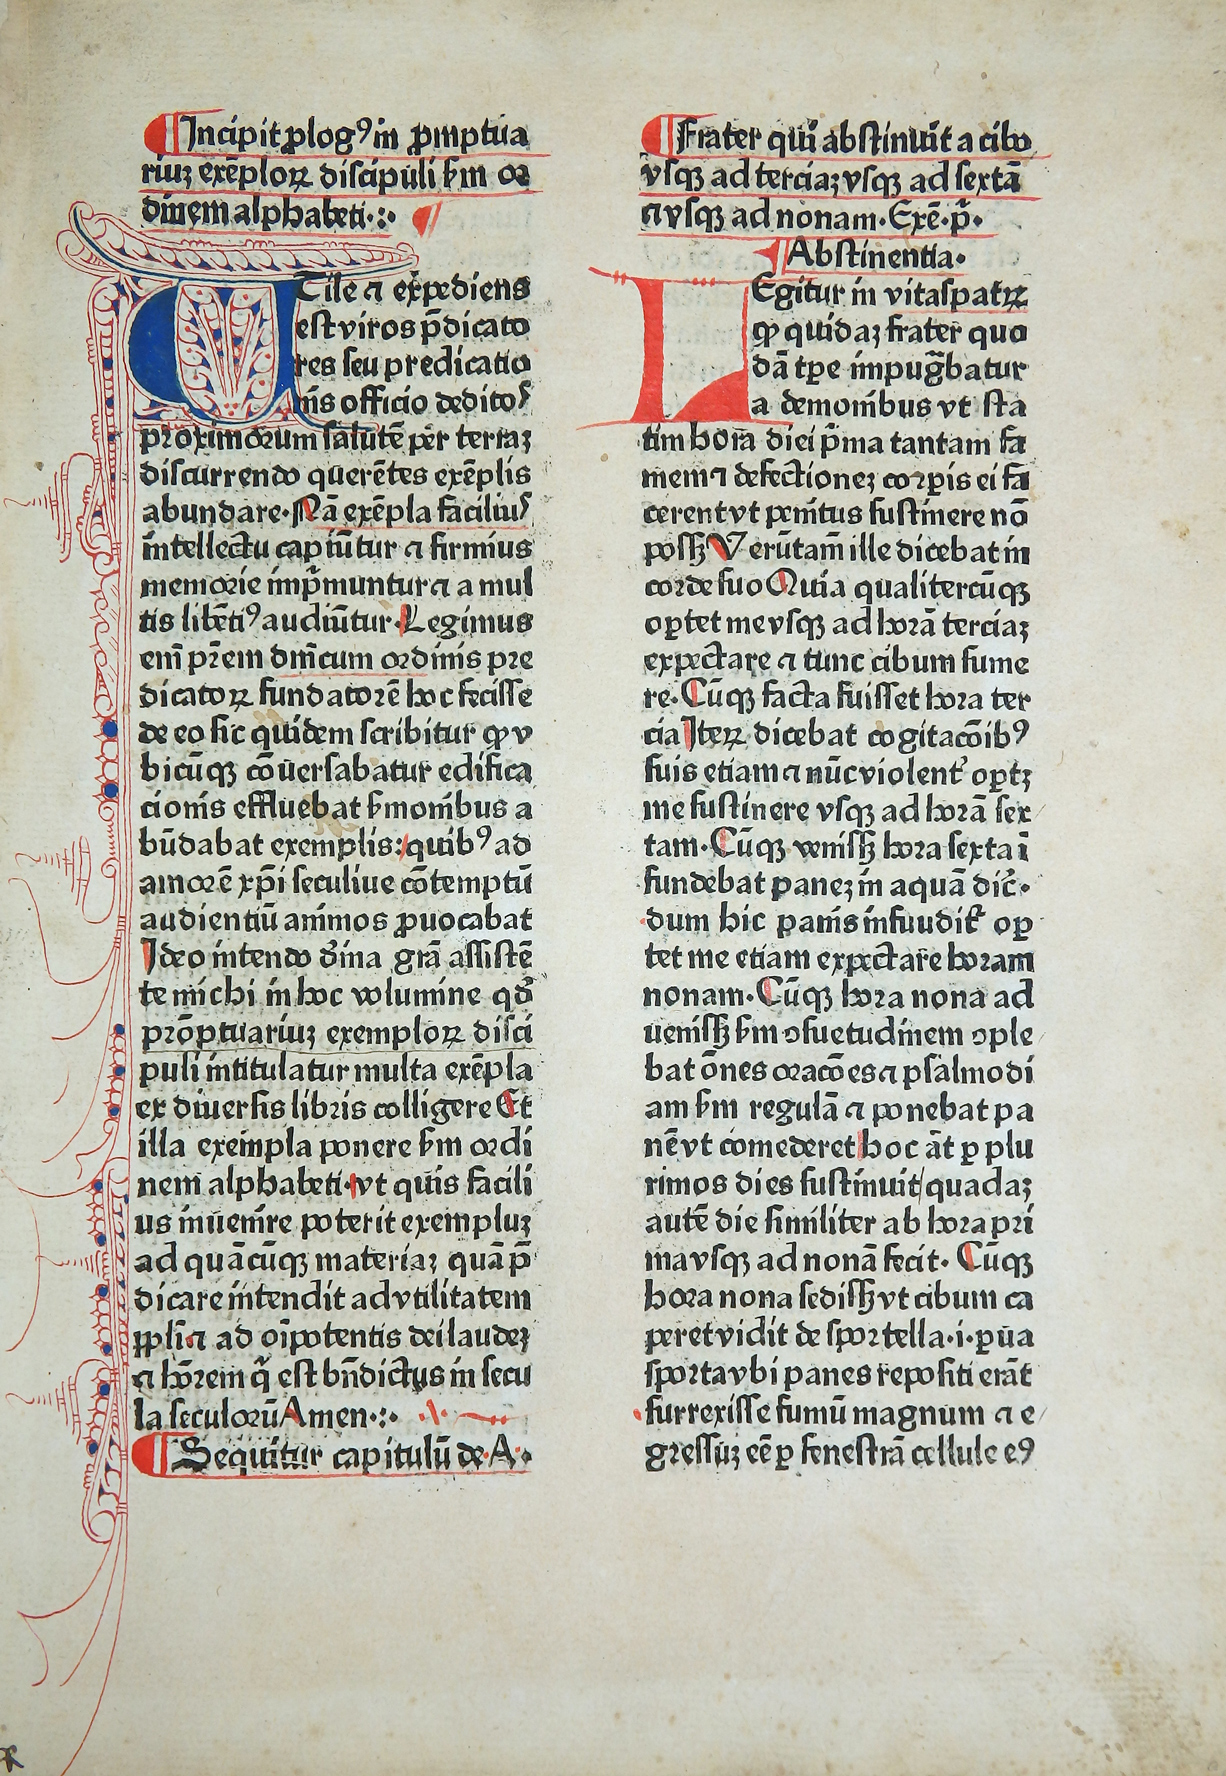 Incipit ꝓlogꝰ in ꝓmptua
riuꝫ exēploꝝ discipuli ẜm or
dinem alphabeti·:·
Utile ⁊ expediens
est viros p̄dicato
res seu predicatio
nis officio deditoſ
proximorum salutē per terraꝫ
discurrendo querētes exēplis
abundare· Nā exēpla faciliuſ
intellectu capiūtur ⁊ firmius
memorie imp̄muntur ⁊ a mul
tis libētiꝰ audiūtur· Legimus
enī pr̄em dn̄icum ordinis pre
dicatoꝝ fundatorē hoc fecisse
de eo sic quidem scribitur ꝙ v
bicūqꝫ cōuersabatur edifica
cionis effluebat ẜmonibus a
būdabat exemplis: quibꝰ ad
amorē xp̄i seculiue cōtemptū
audientiū animos ꝓuocabat
Ideo intendo d̄ina grā assistē
te michi in hoc volumine qd̄
prōptuariuꝫ exemploꝝ disci
puli intitulatur multa exēpla
ex diuersis libris colligere Et
illa exempla ponere ẜm ordi
nem alphabeti· vt quis facili
us inuenire poterit exempluꝫ
ad quācūqꝫ materiaꝫ quā p̄
dicare intendit ad vtilitatem
ꝓpli ⁊ ad oīpotentis dei laudeꝫ
⁊ hōrem q̄ est bn̄dictus in secu
la seculorū Amen·:·
Sequitur capitulū de·A·
Frater qui abstinuit a cibo
vsqꝫ ad terciaꝫ vsqꝫ ad sextā
⁊ vsqꝫ ad nonam· Exē·p̄·
Abstinentia·
LEgitur in vitaspatꝝ
ꝙ quidaꝫ frater quo
dā tꝑe impuḡbatur
a demonibus vt sta
tim hora diei p̄ma tantam fa
mem ⁊ defectioneꝫ corꝑis ei fa
cerent vt penitus sustinere nō
possꝫ Verūtam ille dicebat in
corde suo Quia qualitercūqꝫ
oꝑtet me vsqꝫ ad horā terciaꝫ
expectare ⁊ tunc cibum sume
re· Cūqꝫ facta fuisset hora ter
cia Iteꝝ dicebat cogitacōibꝰ
suis etiam ⁊ nūc violent᾽ oꝑtꝫ
me sustinere vsqꝫ ad horā sex
tam· Cūqꝫ venissꝫ hora sexta ī
fundebat paneꝫ in aquā dic̄·
dum hic panis infudit᾽ oꝑ
tet me etiam expectare horam
nonam· Cūqꝫ hora nona ad
uenissꝫ ẜm ↄsuetudinem ↄple
bat ōnes oracōes ⁊ psalmodi
am ẜm regulā ⁊ ponebat pa
nē vt comederet hoc āt ꝑ plu
rimos dies sustinuit quadaꝫ
autē die similiter ab hora pri
ma vsqꝫ ad nonā fecit· Cūqꝫ
hora nona sedissꝫ vt cibum ca
peret vidit de sportella·i·ꝑua
sporta vbi panes repositi erāt
surrexisse fumū magnum ⁊ e
gressuꝫ eē ꝑ fenestrā cellule eꝰ